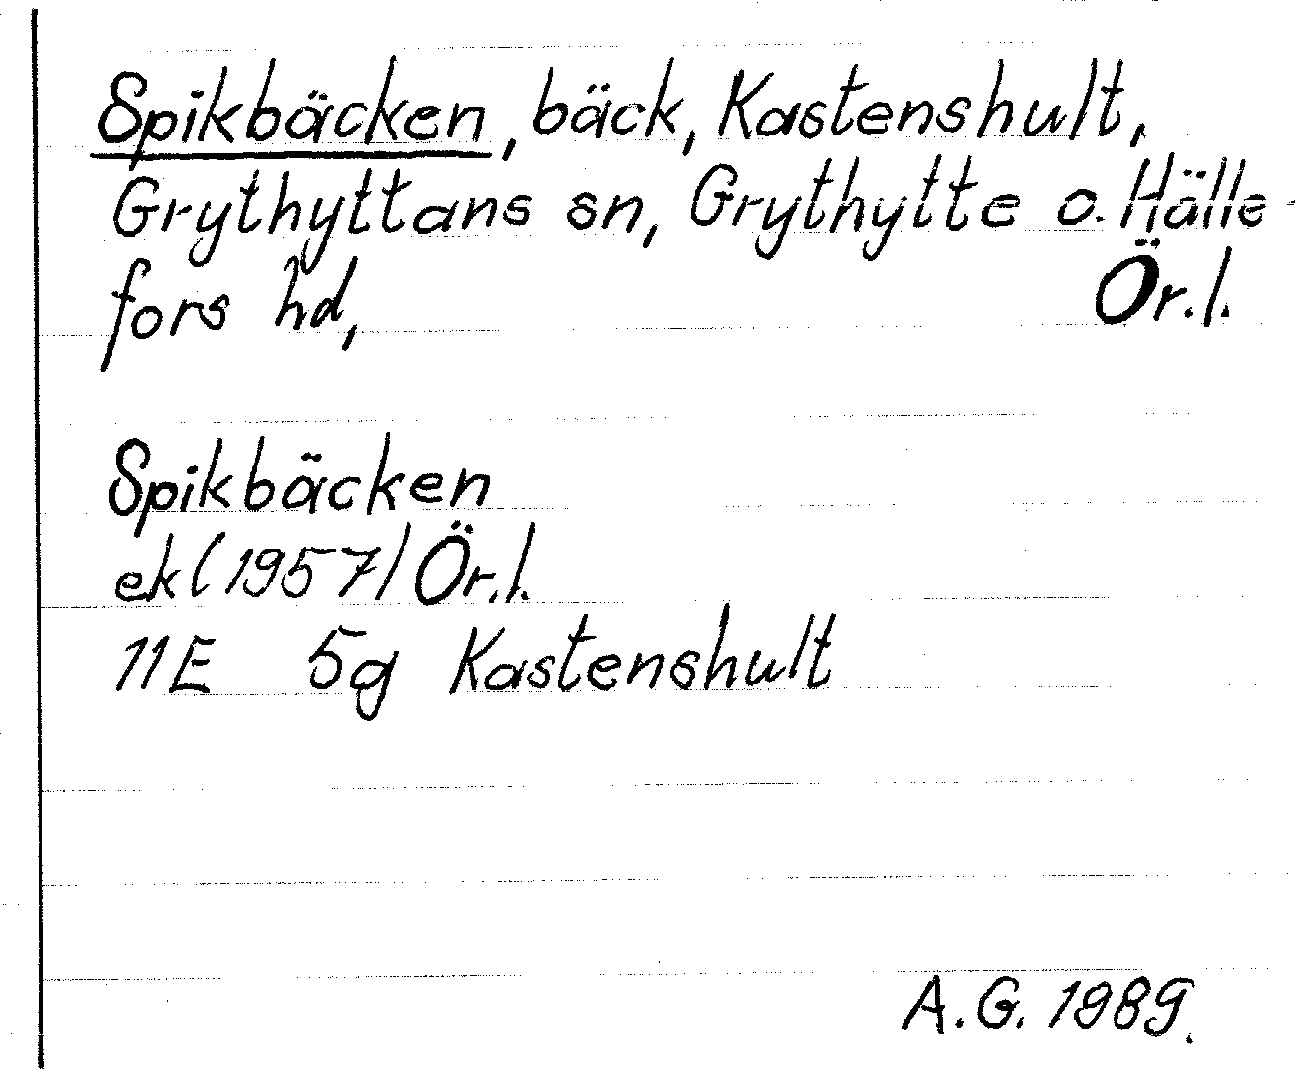 Spikbäcken, bäck, Kastenshult,
Grythyttans sn, Grythytte o. Hälle-
fors hd, Ör.l.
Spikbäcken
ek (1957) Ör.l.
11E 5g Kastenshult
A.G. 1989.